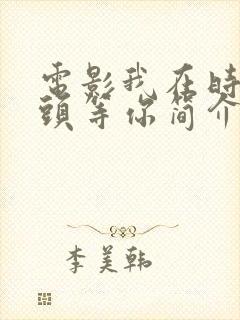 電影我在時
頭等你简介
李美韩